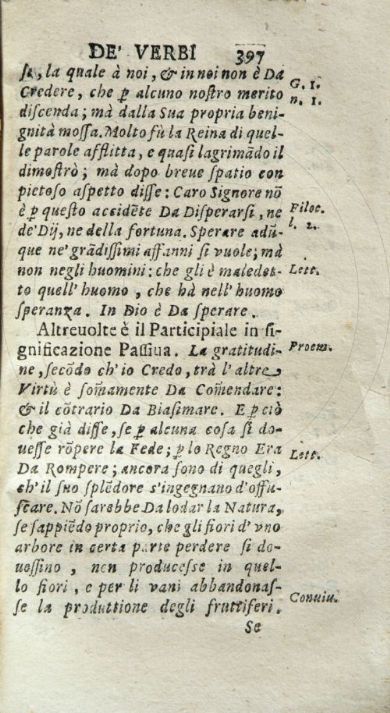 DE' VERBI 397
se, la quale à noi, & in noi non è Da
Credere, che ꝑ alcuno nostro merito
discenda; mà dalla Sua propria beni-
gnità mossa. Molto fù la Reina di quel-
le parole afflitta, e quasi lagrimãdo il
dimostrò; mà dopo breue spatio con
pietoso aspetto disse: Caro Signore nõ
è ꝑ questo accidẽte Da Disperarsi, ne
de' Dij, ne della fortuna. Sperare adũ-
que ne' grãdissimi affanni si vuole; mà
non negli huomini: che gli è maledet-
to quell' huomo, che hà nell' huomo
speranza. In Dio è Da sperare.
Altreuolte è il Participiale in si-
gnificazione Passiua. La gratitudi-
ne, secõdo ch' io Credo, trà l'altre
Virtù è som̃amente Da Com̃endare:
& il cõtrario Da Biasimare. E ꝑ ciò
che già disse, se ꝑ alcuna cosa si do-
uesse rõpere la Fede; ꝑ lo Regno Era
Da Rompere; ancora sono di quegli,
ch' il suo splẽdore s'ingegnano d'offu-
scare. Nõ sarebbe Da lodar la Natura,
se sappiẽdo proprio, che gli fiori d' vno
arbore in certa parte perdere si do-
uessino, non producesse in quel-
lo fiori, e per li vani abbandonas-
se la produttione degli fruttiferi.
Se
G. 1.
n. 1.
Filoc.
l. 2.
Lett.
Proem.
Lett.
Conuiu.